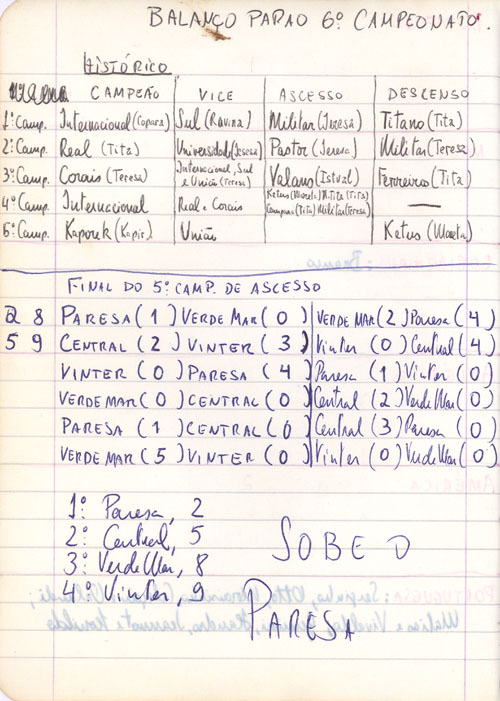 BALANÇO PARA O 6º CAMPEONATO.
HISTÓRICO
CAMPEÃO VICE ASCESSO DESCENSO
1º Camp. Internacional (Capara) Sul (Ravina) Militar (Teresa) Titano (Tita)
2º Camp. Real (Tita) Universidad (Teresa) Pastor (Teresa) Militar (Teresa)
3º Camp. Corais (Teresa) Internacional, Sul e União (Teresa) Valano (Istual) Ferreiro (Tita)
4º Camp. Internacional Real e Corais Ketus (Maeta) (Tita) Campinas (Tita) Militar (Teresa) —
5º Camp. Kaporek (Kapir) União Ketus (Maeta)
FINAL DO 5º CAMP. DE ASCESSO
2 8 PARESA (1) VERDE MAR (0) VERDE MAR (2) Paresa (4)
5 9 CENTRAL (2) VINTER (3) Vinter (0) Central (4)
VINTER (0) PARESA (4) Paresa (1) Vinter (0)
VERDE MAR (0) CENTRAL (0) Central (2) Verde Mar (0)
PARESA (1) CENTRAL (0) Central (3) Paresa (0)
VERDE MAR (5) VINTER (0) Vinter (0) Verde Mar (0)
1º Paresa, 2
2º Central, 5
3º Verde Mar, 8
4º Vinter, 9
SOBE O
PARESA